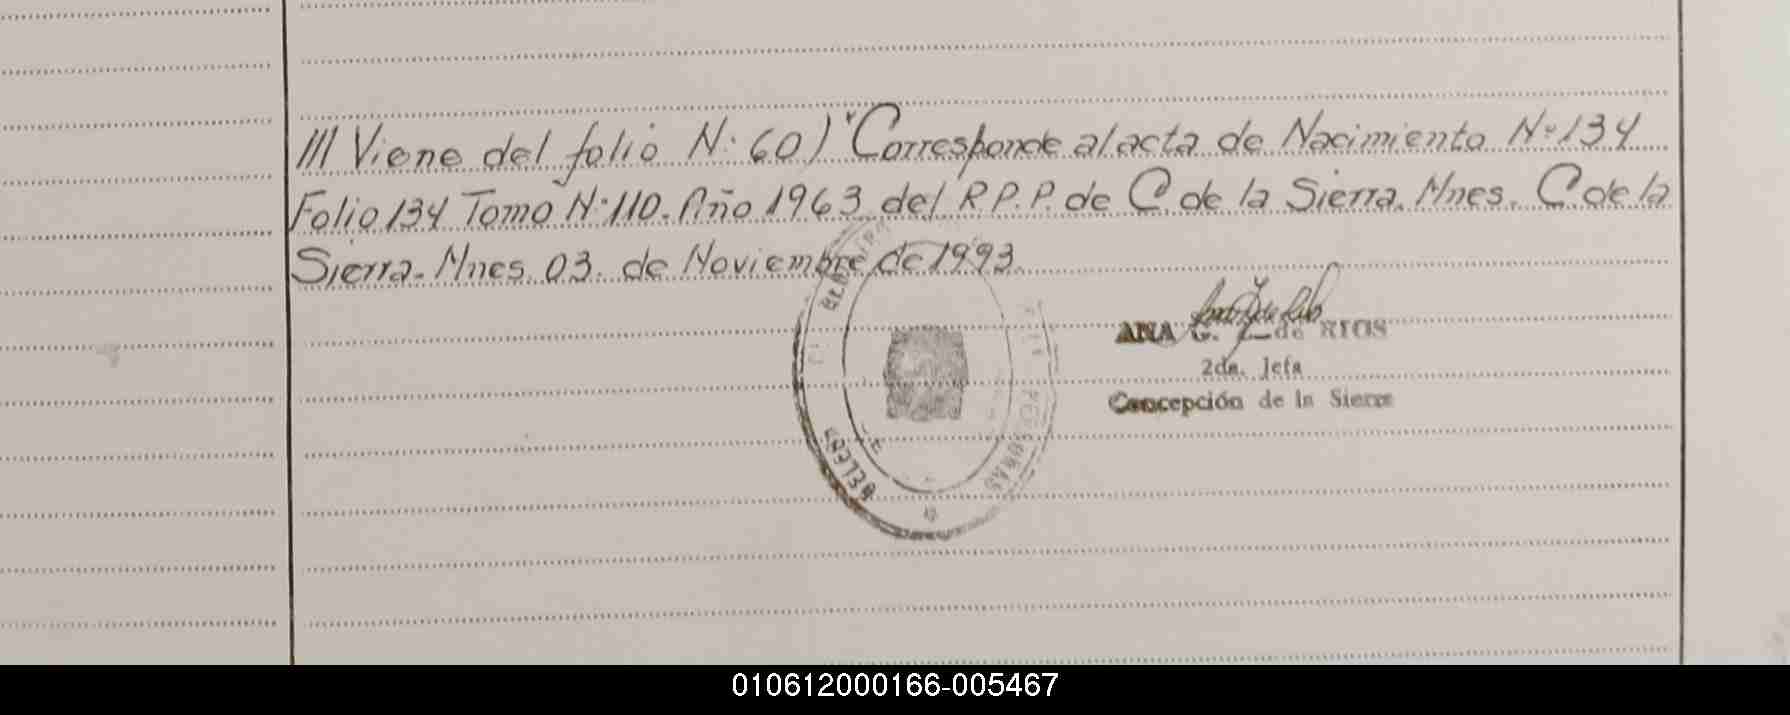 /// Viene del folio N: 60) "Corresponde al acta de Nacimiento Nº 134
Folio 134 Tomo Nº 110. Año 1963 del R.P.P. de C. de la Sierra. Mnes. C de la
Sierra. Mnes. 03. de Noviembre de 1993.
ANA G. de RIOS
2da. Jefa
Concepción de la Sierra
PERSONAS
010612000166-005467